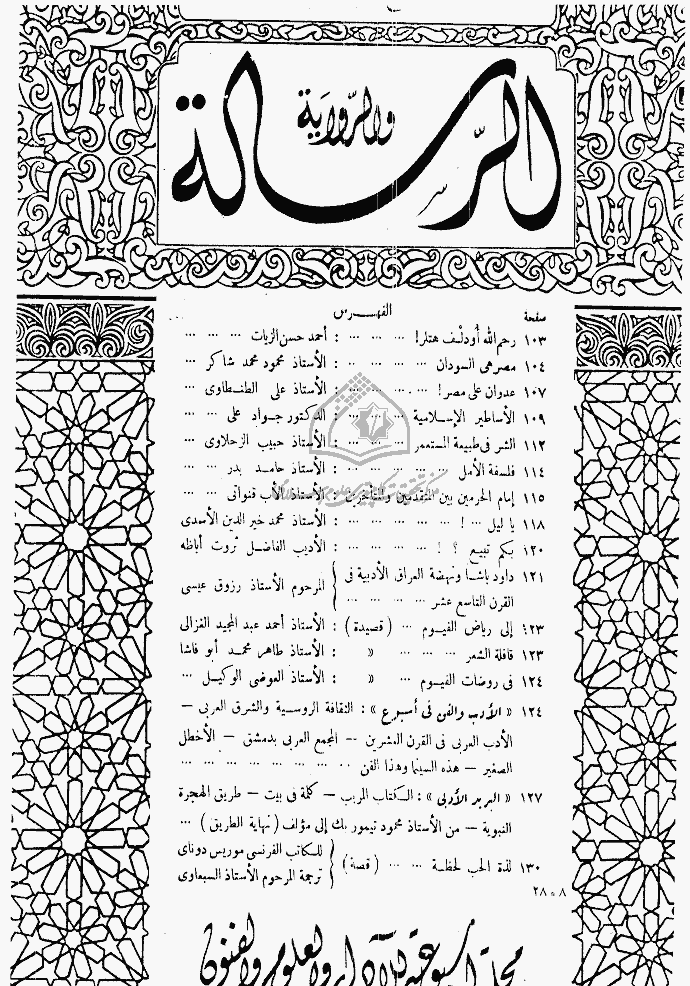 الرسالة
والرواية
الفهرس
صفحة
١٠٣ رحم الله أودلف هتلر! ... ... ... : أحمد حسن الزيات ... ... ...
١٠٤ مصر هى السودان ... ... ... ... : الأستاذ محمود محمد شاكر ...
١٠٧ عدوان على مصر! ... ... ... ... : الأستاذ على الطنطاوى ...
١٠٩ الأساطير الإسلامية ... ... ... : الدكتور جواد على ... ...
١١٢ الشر فى طبيعة المستعمر ... ... ... : الأستاذ حبيب الزحلاوى ...
١١٤ فلسفة الأمل ... ... ... ... : الأستاذ حامد بدر ... ...
١١٥ إمام الحرمين بين المتقدمين والمتأخرين : الأستاذ الأب قنواتى ... ...
١١٨ يا ليل ... ! ... ... ... ... : الأستاذ محمد خير الدين الأسدى
١٢٠ بكم تبيع ؟ ! ... ... ... ... : الأديب الفاضل ثروت أباظه
١٢١ داود باشا ونهضة العراق الأدبية فى القرن التاسع عشر ... ... ... ... } المرحوم الأستاذ رزوق عيسى
١٢٣ إلى رياض الفيوم ... ( قصيدة ) : الأستاذ أحمد عبد المجيد الغزالى
١٢٣ قافلة الشعر ... ... ... « : الأستاذ طاهر محمد أبو فاشا
١٢٤ فى روضات الفيوم ... « : الأستاذ العوضى الوكيل ...
١٢٤ « الأدب والفن فى أسبوع » : الثقافة الروسية والشرق العربى —
الأدب العربى فى القرن العشرين — المجمع العربى بدمشق — الأخطل
الصغير — هذه السينما وهذا الفن ... ... ... ... ... ... ...
١٢٧ « البريد الأدبى » : الكتاب المريب — كلمة فى بيت — طريق الهجرة
النبوية — من الأستاذ محمود تيمور بك إلى مؤلف ( نهاية الطريق ) ...
١٣٠ لذة الحب لحظة ... ... ( قصة ) } للكاتب الفرنسى موريس دوناى
ترجمة المرحوم الأستاذ السبعاوى
مجلة أسبوعية للآداب والعلوم والفنون